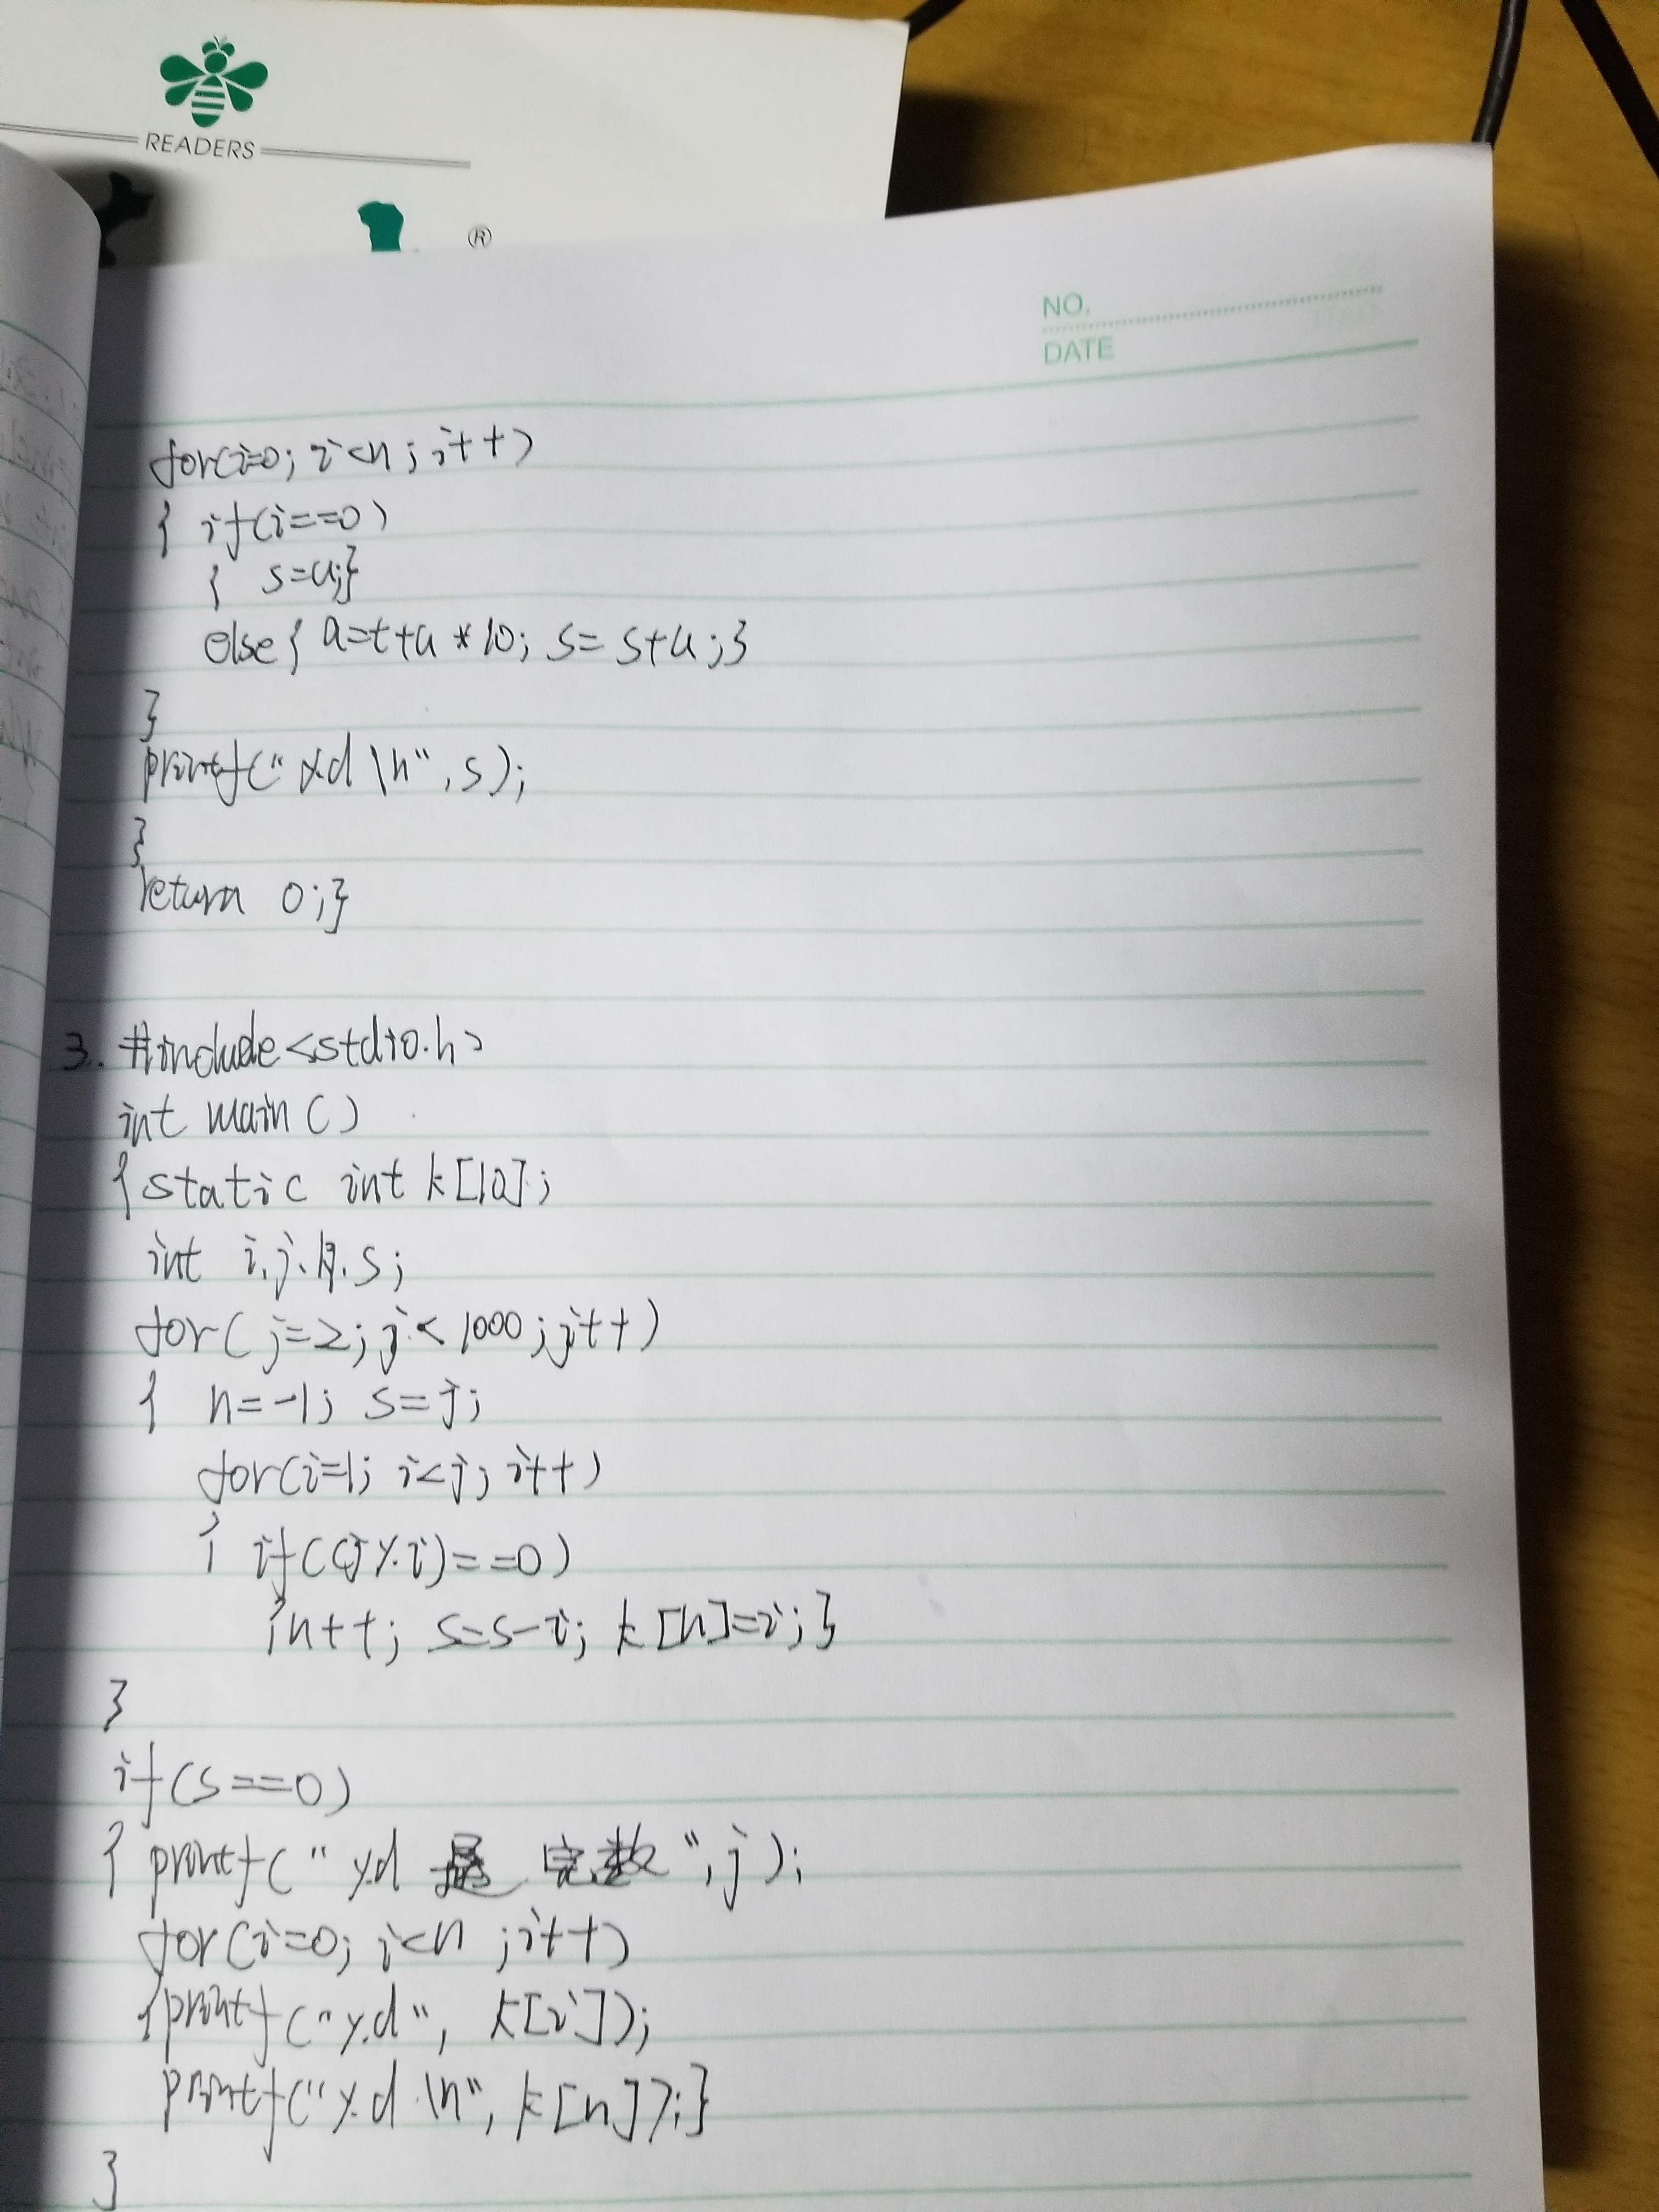 READERS
®
NO.
DATE
for(i=0; i<n; i++)
{ if(i==0)
{ s=a;}
else{ a=t+a*10; s=s+a;}
}
printf("%d\n",s);
}
return 0;}
3. #include<stdio.h>
int main()
{static int k[10];
int i.j.n.s;
for(j=2;j<1000;j++)
{ n=-1; s=j;
for(i=1; i<j; i++)
{ if((j%i)==0)
{n++; s=s-i; k[n]=i;}
}
if(s==0)
{ printf("%d 是 完数",j);
for(i=0; i<n ;i++)
{printf("%d", k[i]);
printf("%d\n", k[n]);}
}